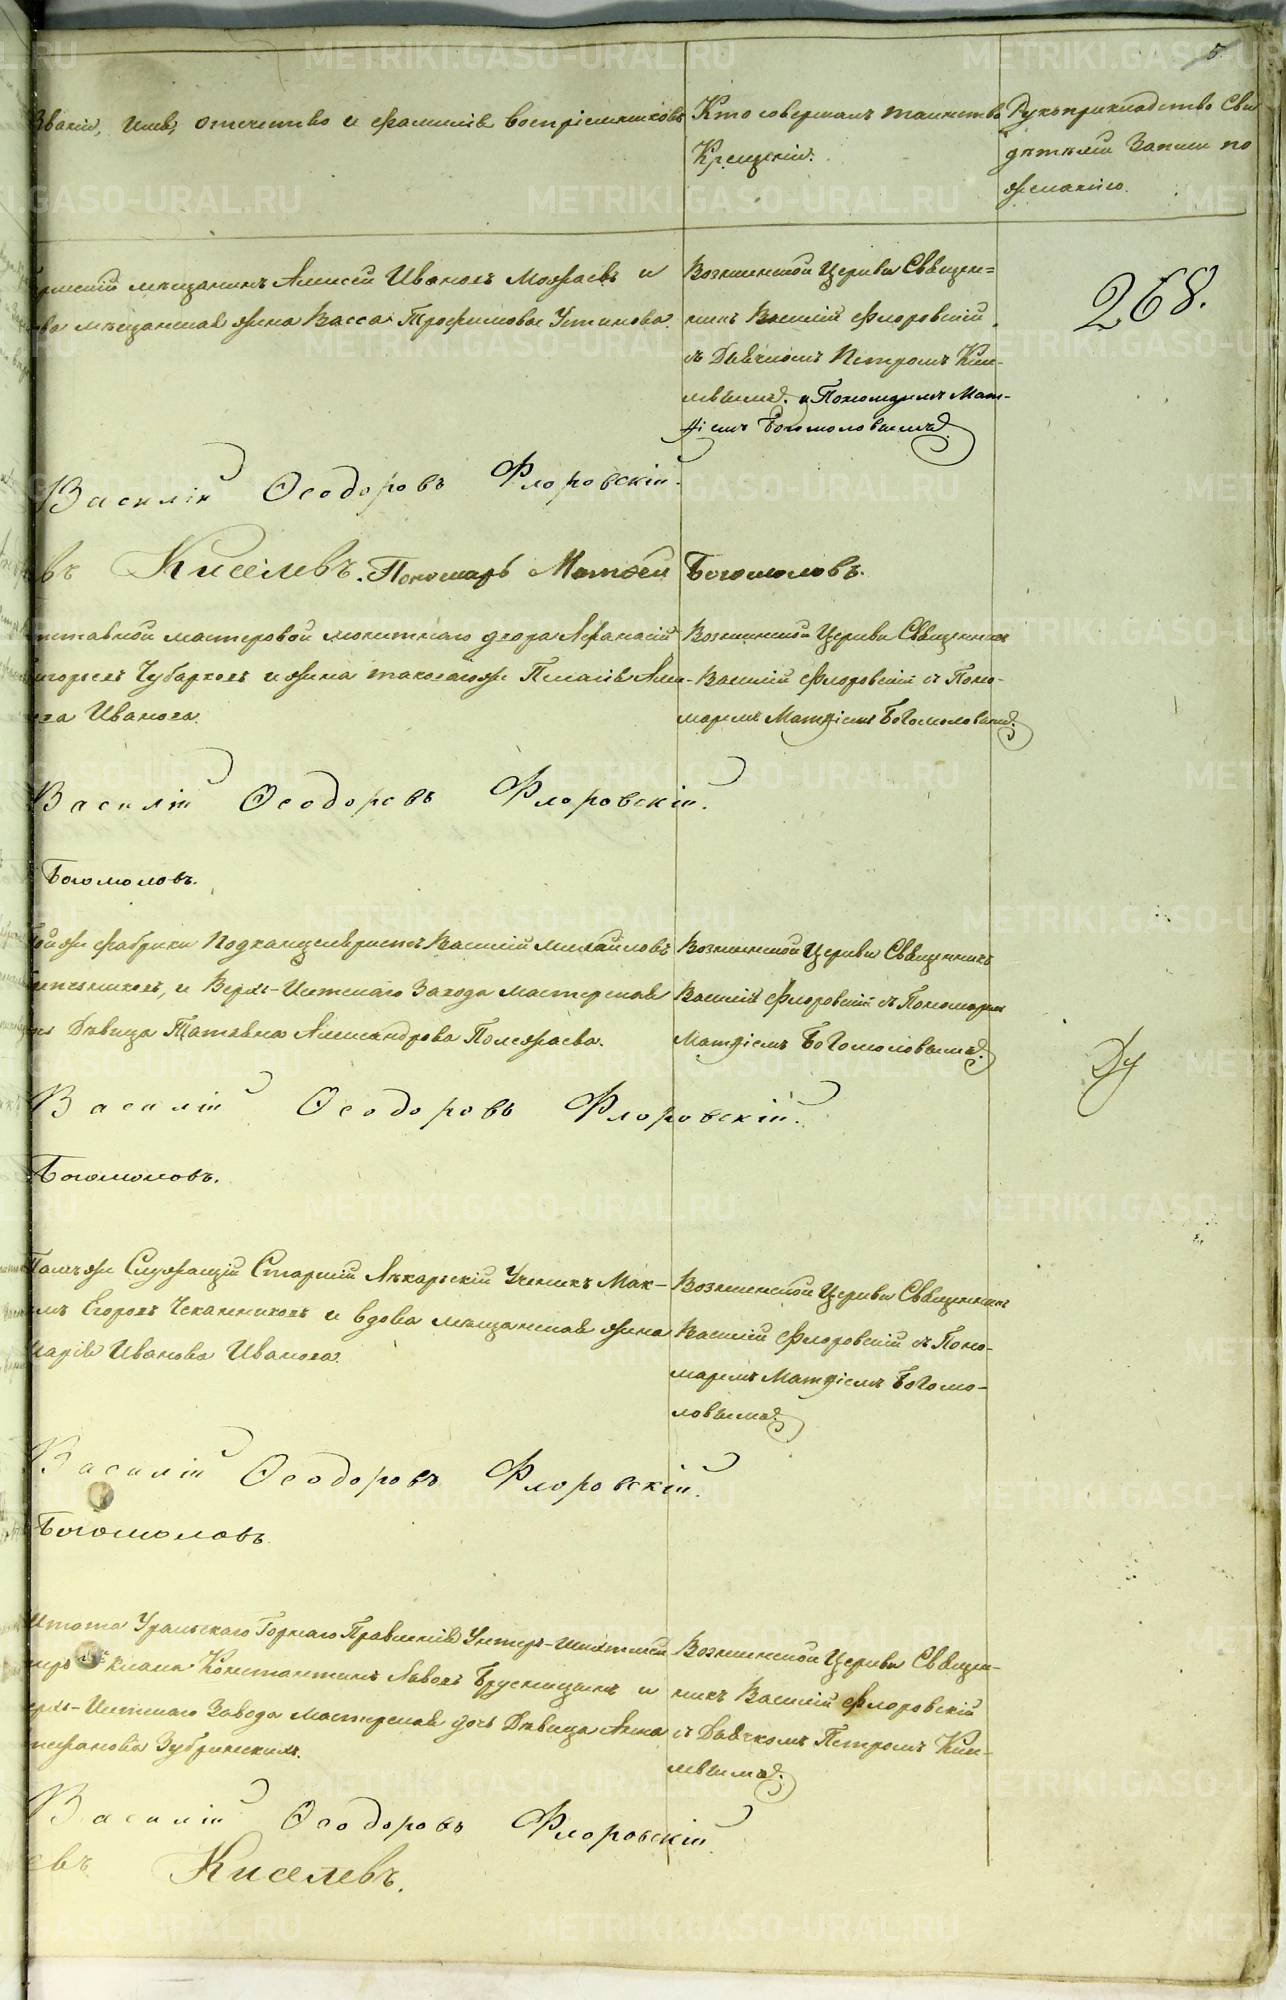 5
Званіе, имя, отечество и фамилія воспріемниковъ
Кто совершалъ таинство
Крещенія.
Рукоприкладство сви
дѣтелей записи по
желанію.
мѣщанинъ Алексей Ивановъ Можаевъ и
мѣщанская жена Васса Трофимова Устинова.
Вознесенской Церкви Священ=
никъ Василій Флоровскій
съ Дьячкомъ Петромъ Кисе-
левымъ. и Пономаремъ Мат-
ѳіемъ Богомоловымъ.
268.
Василій Ѳеодоровъ Флоровскій.
въ Киселевъ. Пономарь Матѳей Богомоловъ.
мастеровой монетнаго двора Афанасій
Чубарковъ и жена таковагожъ Пелагія
Иванова.
Вознесенской Церкви Священникъ
Василій Флоровскій съ Поно-
маремъ Матѳіемъ Богомоловымъ.
Василій Ѳеодоровъ Флоровскій.
Богомоловъ.
фабрики Подканцеляристъ Василій Михайловъ
и Верхъ-Исетскаго Завода мастерская
Дѣвица Татьяна Александрова Полежаева.
Вознесенской Церкви Священникъ
Василій Флоровскій съ Пономаремъ
Матѳіемъ Богомоловымъ.
Василій Ѳеодоровъ Флоровскій.
Богомоловъ.
Служащій Старшій Лѣкарскій Ученикъ Мак-
Егоровъ Чеканниковъ и вдова мѣщанская жена
Марія Иванова Иванова.
Вознесенской Церкви Священникъ
Василій Флоровскій съ Поно-
маремъ Матѳіемъ Богомо-
ловымъ.
Василій Ѳеодоровъ Флоровскій.
Богомоловъ.
Штата Уральскаго Горнаго Правленія Унтеръ-Шихтмей
Константинъ Львовъ Брусницынъ и
Верхъ-Исетскаго Завода мастерская дочь Дѣвица Анна
Стефанова Зубринскихъ.
Вознесенской Церкви Священ-
никъ Василій Флоровскій
съ Дьячкомъ Петромъ Кисе-
левымъ.
Василій Ѳеодоровъ Флоровскій
евъ Киселевъ.
METRIKI.GASO-URAL.RU